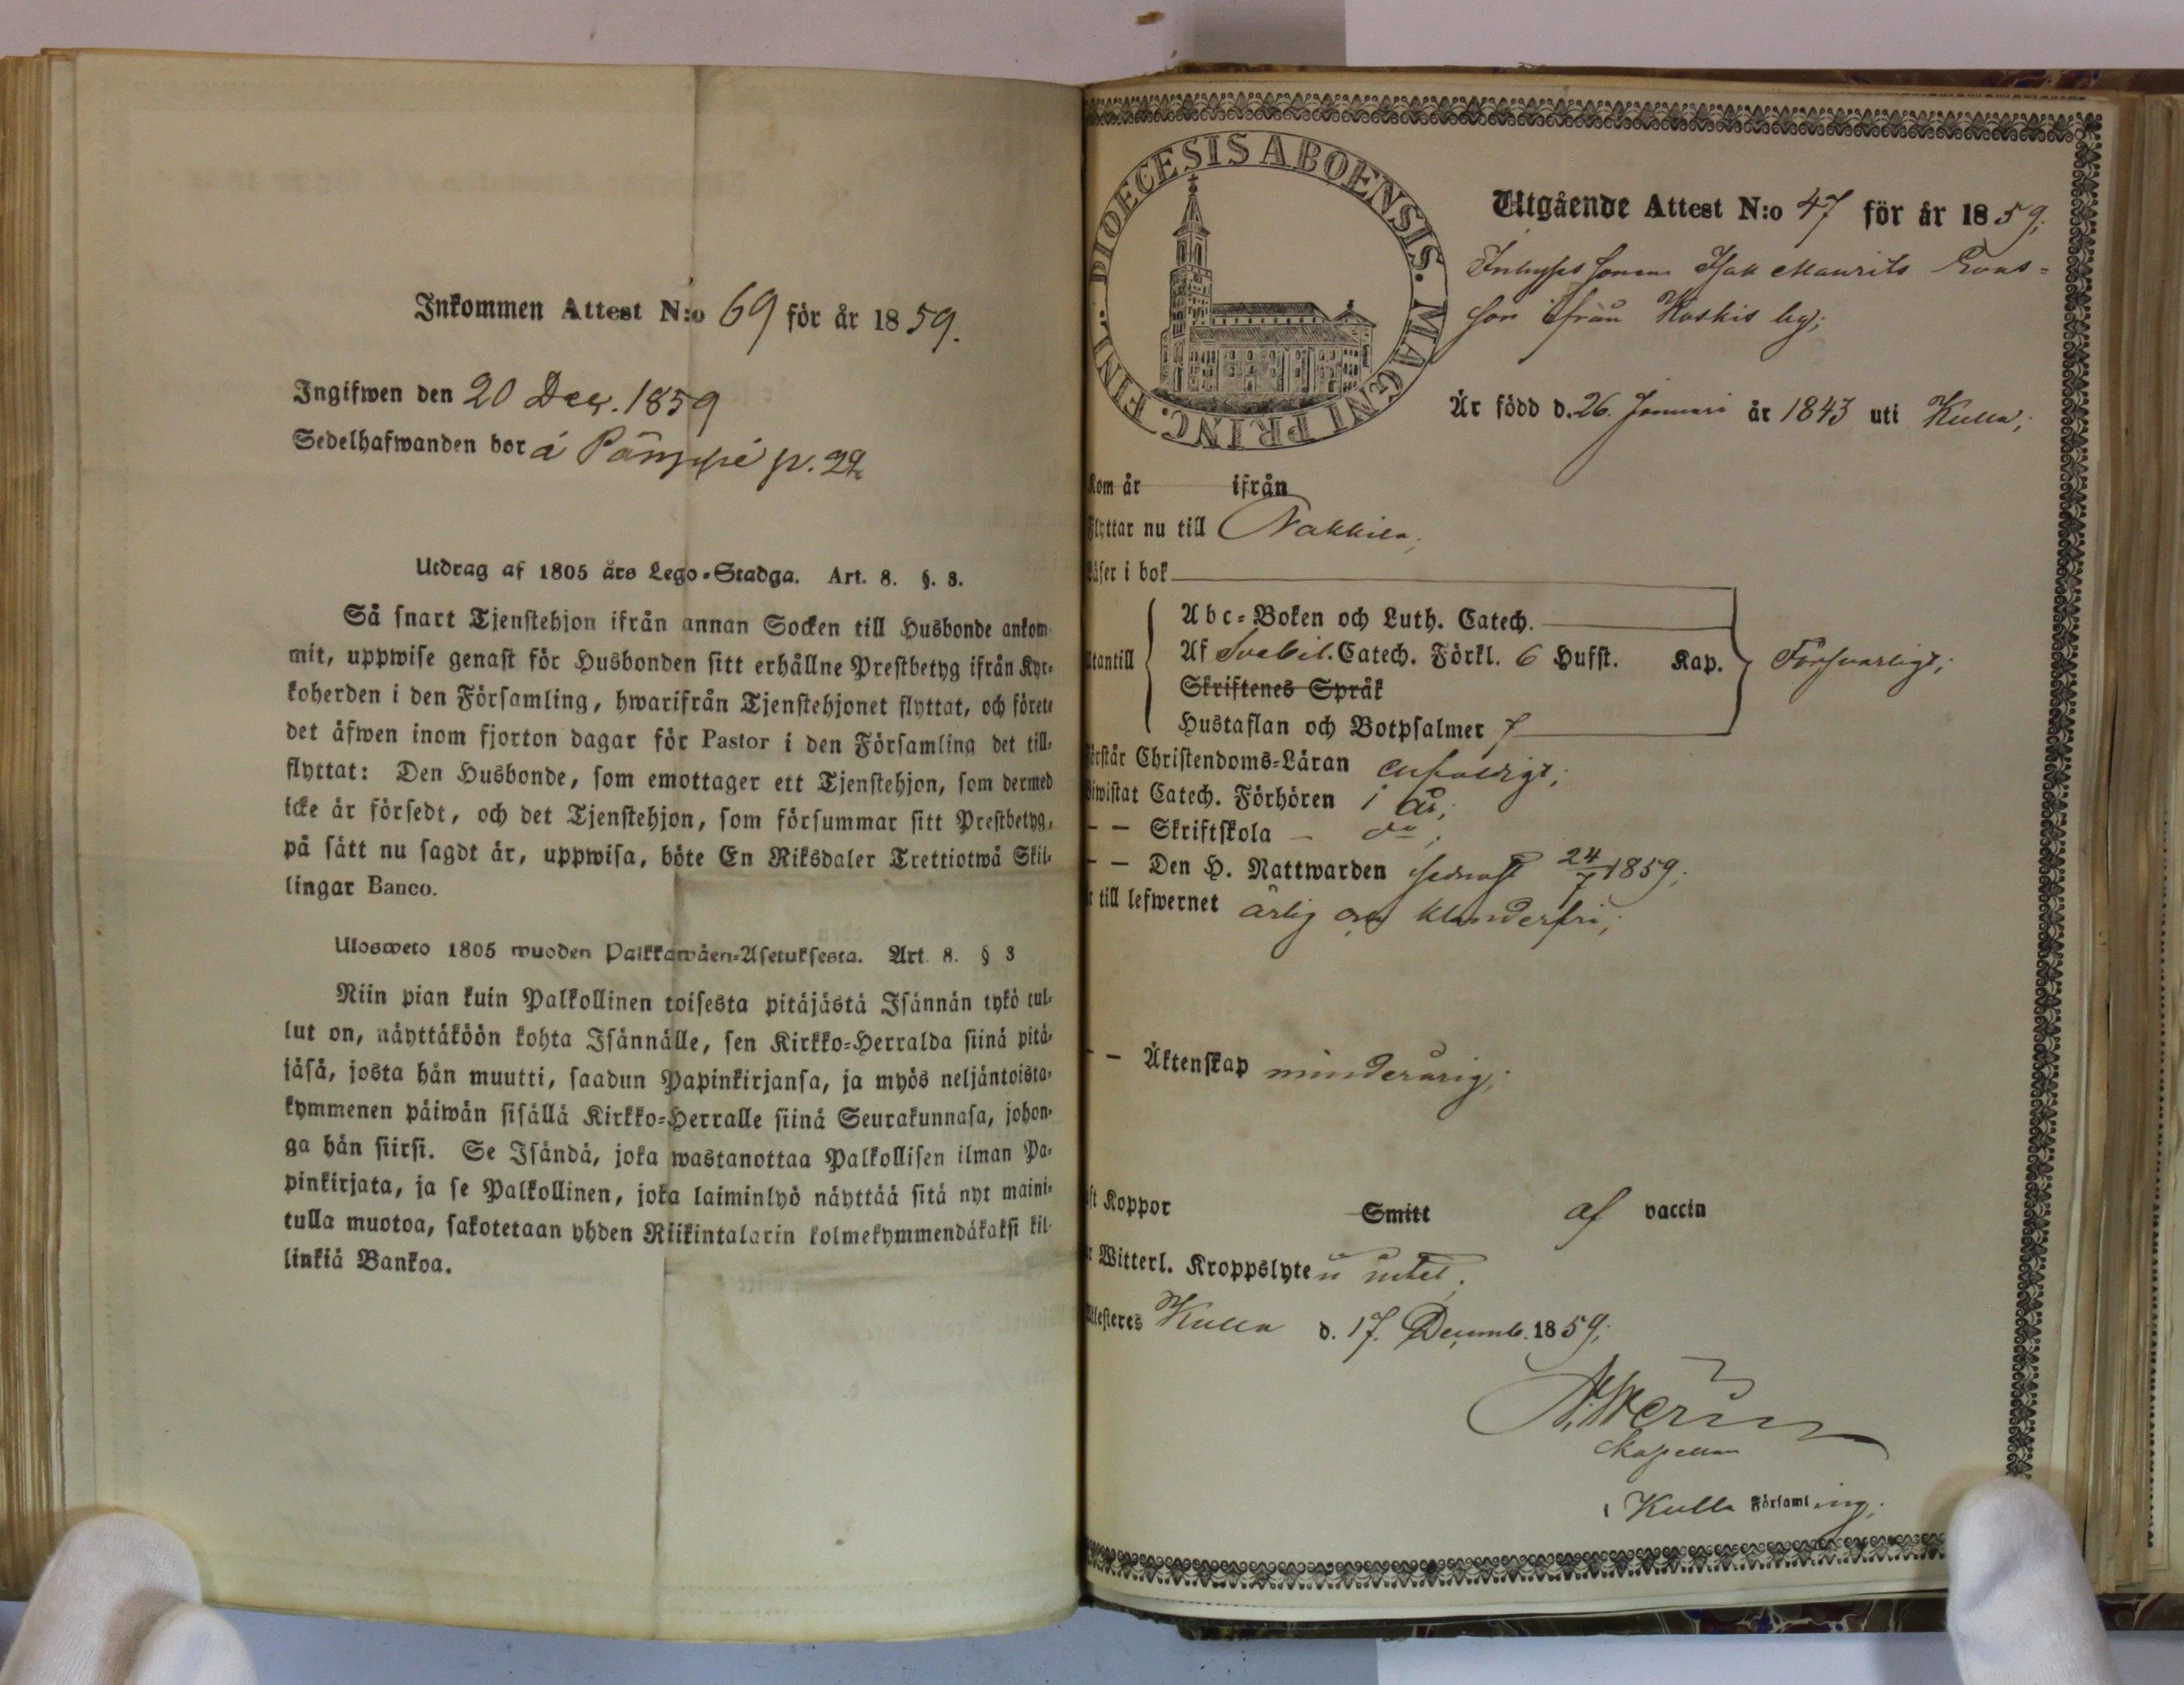 Inkommen Attest N:o 69 för år 1859.
Ingifwen den 20 Dec. 1859
Sedelhafwanden bor å Pämppi p. 22
Utdrag af 1805 års Lego-Stadga. Art. 8. §. 3.
Så snart Tjenstehjon ifrån annan Socken till Husbonde ankom-
mit, uppwise genast för Husbonden sitt erhållne Prestbetyg ifrån Kyr-
koherden i den Församling, hwarifrån Tjenstehjonet flyttat, och förete
det äfwen inom fjorton dagar för Pastor i den Församling det till-
flyttat: Den Husbonde, som emottager ett Tjenstehjon, som dermed
icke är försedt, och det Tjenstehjon, som försummar sitt Prestbetyg,
på sätt nu sagdt är, uppwisa, böte En Riksdaler Trettiotwå Skil-
lingar Banco.
Ulosweto 1805 wuoden Palkkawäen-Asetuksesta. Art. 8. § 3
Niin pian kuin Palkollinen toisesta pitäjästä Isännän tykö tul-
lut on, näyttäköön kohta Isännälle, sen Kirkko-Herralda siinä pitä-
jäsä, josta hän muutti, saadun Papinkirjansa, ja myös neljäntoista-
kymmenen päiwän sisällä Kirkko-Herralle siinä Seurakunnasa, johon-
ga hän siirsi. Se Isändä, joka wastanottaa Palkollisen ilman Pa-
pinkirjata, ja se Palkollinen, joka laiminlyö näyttää sitä nyt maini-
tulla muotoa, sakotetaan yhden Riikintalarin kolmekymmendäkaksi kil-
linkiä Bankoa.
DIOECESIS ABOENSIS. MAGNI PRINC. FINL.
Utgående Attest N:o 47 för år 1859;
Inhyses sonen Isak Maurits Evas-
son ifrån Koskis by;
Är född d. 26. Januari år 1843 uti Kulla;
Kom år ifrån
Flyttar nu till Nakkila;
Läser i bok
Abc-Boken och Luth. Catech.
Utantill Af Svebil. Catech. Förkl. 6 Hufst. Kap. Försvarligt;
Skriftenes Språk
Hustaflan och Botpsalmer 7
Förstår Christendoms-Läran enfaldigt;
Biwistat Catech. Förhören i år;
– – Skriftskola – do;
– – Den H. Nattwarden sednast 24/7 1859;
Är till lefwernet ärlig och klanderfri;
– – Äktenskap minderårig;
Koppor Smitt af vaccin
Witterl. Kroppslyte utan
Attesteres Kulla d. 17. Decemb. 1859;
Kapellan
i Kulla Församling;